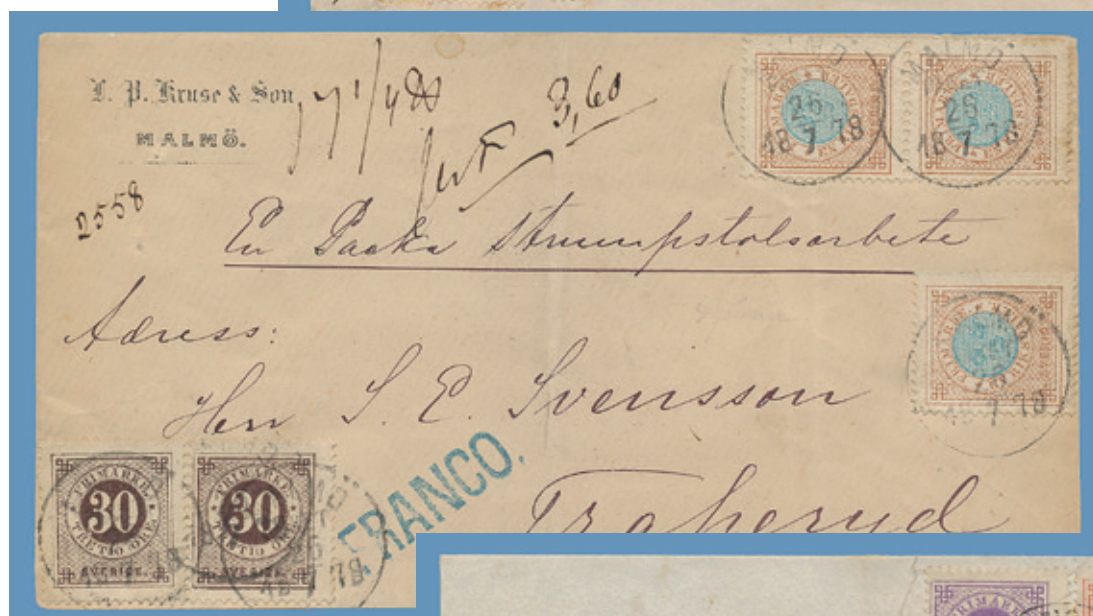 L. P. Kruse & Son
MALMÖ.
3,60
2558
En Packe Strumpstolsarbete
Adress:
Herr S. P. Svensson
Traheryd
FRANCO.
MALMÖ
26
18 7 78
MALMÖ
26
18 7 78
18 7 78
FRIMÄRKE
30
TRETIO ÖRE
SVERIGE.
FRIMÄRKE
30
TRETIO ÖRE
SVERIGE.
FRIMÄRKE